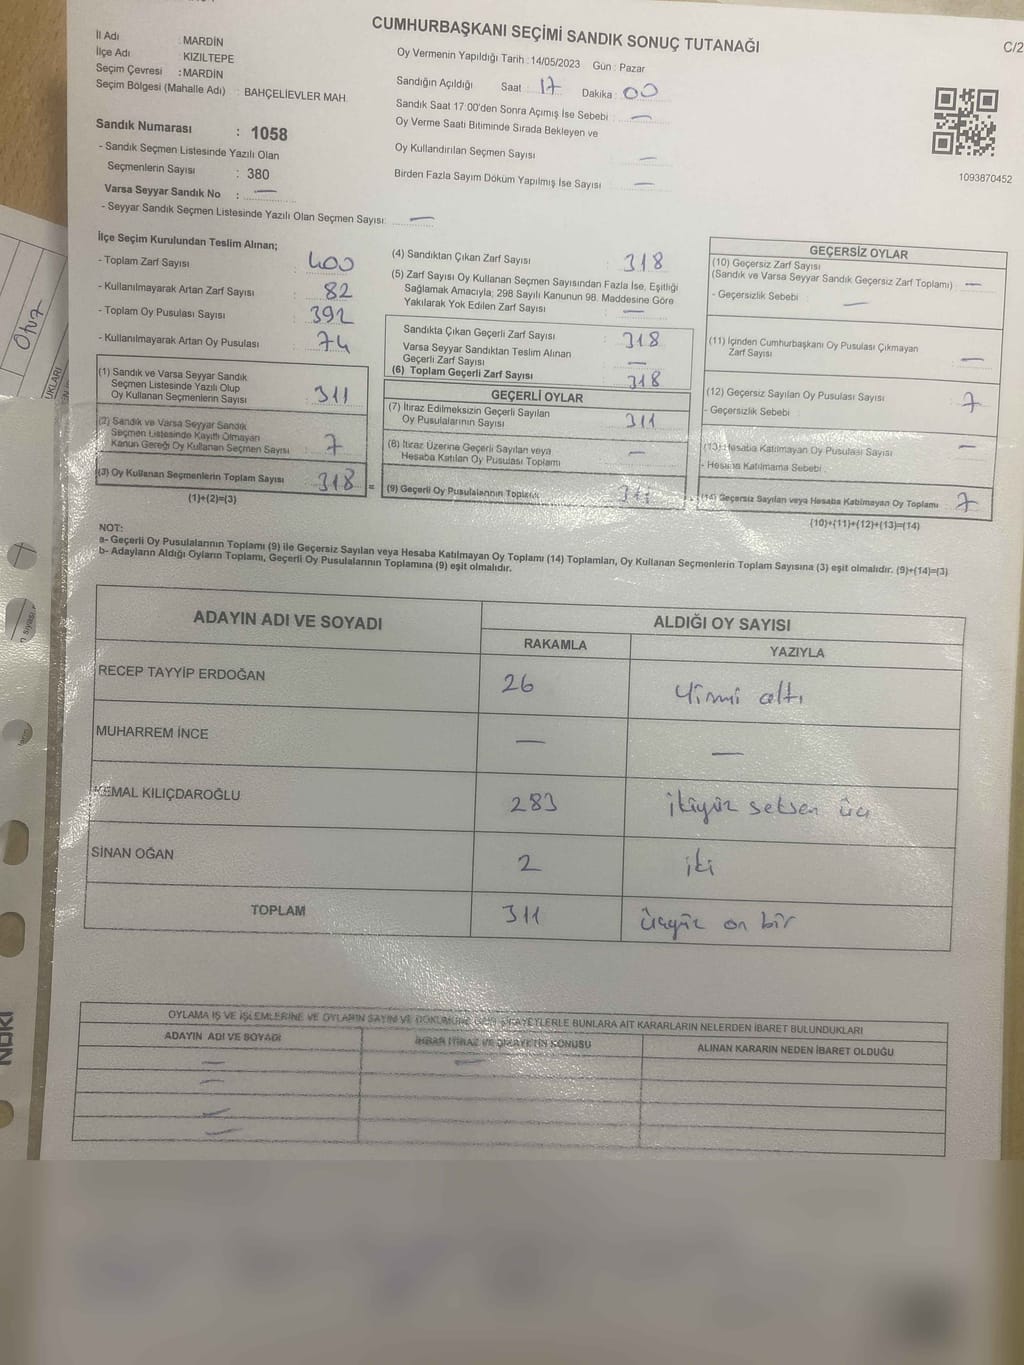 CUMHURBAŞKANI SEÇİMİ SANDIK SONUÇ TUTANAĞI
C/2
İl Adı : MARDİN
İlçe Adı KIZILTEPE
Seçim Çevresi : MARDİN
Seçim Bölgesi (Mahalle Adı) : BAHÇELİEVLER MAH.
Sandık Numarası : 1058
- Sandık Seçmen Listesinde Yazılı Olan
Seçmenlerin Sayısı : 380
Varsa Seyyar Sandık No : —
- Seyyar Sandık Seçmen Listesinde Yazılı Olan Seçmen Sayısı: —
Oy Vermenin Yapıldığı Tarih : 14/05/2023 Gün : Pazar
Sandığın Açıldığı Saat : 17 Dakika : 00
Sandık Saat 17:00'den Sonra Açımış İse Sebebi : —
Oy Verme Saati Bitiminde Sırada Bekleyen ve
Oy Kullandırılan Seçmen Sayısı —
Birden Fazla Sayım Döküm Yapılmış İse Sayısı : —
1093870452
İlçe Seçim Kurulundan Teslim Alınan;
- Toplam Zarf Sayısı : 400
- Kullanılmayarak Artan Zarf Sayısı : 82
- Toplam Oy Pusulası Sayısı : 392
- Kullanılmayarak Artan Oy Pusulası : 74
(1) Sandık ve Varsa Seyyar Sandık
Seçmen Listesinde Yazılı Olup
Oy Kullanan Seçmenlerin Sayısı : 311
(2) Sandık ve Varsa Seyyar Sandık
Seçmen Listesinde Kayıtlı Olmayan
Kanun Gereği Oy Kullanan Seçmen Sayısı : 7
(3) Oy Kullanan Seçmenlerin Toplam Sayısı : 318 =
(1)+(2)=(3)
(4) Sandıktan Çıkan Zarf Sayısı : 318
(5) Zarf Sayısı Oy Kullanan Seçmen Sayısından Fazla İse, Eşitliği
Sağlamak Amacıyla; 298 Sayılı Kanunun 98. Maddesine Göre
Yakılarak Yok Edilen Zarf Sayısı : —
Sandıkta Çıkan Geçerli Zarf Sayısı : 318
Varsa Seyyar Sandıktan Teslim Alınan
Geçerli Zarf Sayısı : —
(6) Toplam Geçerli Zarf Sayısı 318
GEÇERLİ OYLAR
(7) İtiraz Edilmeksizin Geçerli Sayılan
Oy Pusulalarının Sayısı : 311
(8) İtiraz Üzerine Geçerli Sayılan veya
Hesaba Katılan Oy Pusulası Toplamı : —
(9) Geçerli Oy Pusulalarının Toplamı 311
GEÇERSİZ OYLAR
(10) Geçersiz Zarf Sayısı
(Sandık ve Varsa Seyyar Sandık Geçersiz Zarf Toplamı) : —
- Geçersizlik Sebebi : —
(11) İçinden Cumhurbaşkanı Oy Pusulası Çıkmayan
Zarf Sayısı : —
(12) Geçersiz Sayılan Oy Pusulası Sayısı : 7
- Geçersizlik Sebebi :
(13) Hesaba Katılmayan Oy Pusulası Sayısı : —
- Hesaba Katılmama Sebebi :
(14) Geçersiz Sayılan veya Hesaba Katılmayan Oy Toplamı 7
(10)+(11)+(12)+(13)=(14)
NOT:
a- Geçerli Oy Pusulalarının Toplamı (9) ile Geçersiz Sayılan veya Hesaba Katılmayan Oy Toplamı (14) Toplamları, Oy Kullanan Seçmenlerin Toplam Sayısına (3) eşit olmalıdır. (9)+(14)=(3)
b- Adayların Aldığı Oyların Toplamı, Geçerli Oy Pusulalarının Toplamına (9) eşit olmalıdır.
ADAYIN ADI VE SOYADI
ALDIĞI OY SAYISI
RAKAMLA YAZIYLA
RECEP TAYYİP ERDOĞAN 26 Yirmi altı
MUHARREM İNCE — —
KEMAL KILIÇDAROĞLU 283 ikiyüz seksen üç
SİNAN OĞAN 2 iki
TOPLAM 311 üçyüz on bir
OYLAMA İŞ VE İŞLEMLERİNE VE OYLARIN SAYIM VE DÖKÜMÜNE ŞİKAYETLERLE BUNLARA AİT KARARLARIN NELERDEN İBARET BULUNDUKLARI
ADAYIN ADI VE SOYADI İHBAR İTİRAZ VE ŞİKAYETİN KONUSU ALINAN KARARIN NEDEN İBARET OLDUĞU
— —
—
—
—